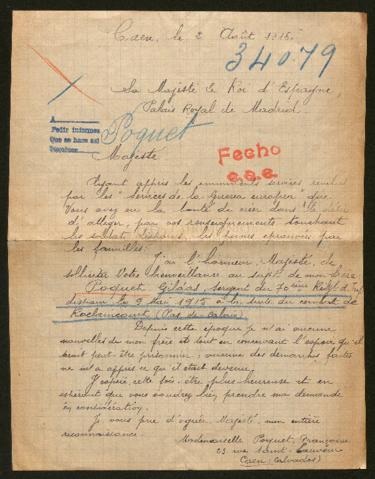 Caen, le 2 Août 1915.
34079
Sa Majesté le Roi d'Espagne,
Palais Royal de Madrid.
A
Pedir informes
Que se hace así
Poquet
Majesté
Fecho
e.s.e.
Ayant appris les éminents services rendus
par les "Services de la Guerra europea" que
Vous avez eu la bonté de créer dans
par vos renseignements touchant
les soldats disparus, les
les familles.
J'ai l'honneur, Majesté, de
solliciter Votre bienveillance au sujet de mon frère
Poquet Gildas, sergent du 70ème Régt d'Inf
disparu le 9 Mai 1915 à la suite du combat de
Roclaincourt (Pas de Calais).
Depuis cette époque je n'ai aucune
nouvelles du mon frère et tout en conservant l'espoir qu'il
serait peut-être prisonnier, aucune des démarches faites
ne m'a appris ce qu'il était devenu.
J'espère, cette fois, être plus heureuse et en
espérant que vous voudrez bien prendre ma demande
en considération.
Je vous prie d'agréer, Majesté, mon entière
reconnaissance.
Mademoiselle Poquet, Françoise
23 rue Saint-Sauveur
Caen (Calvados)